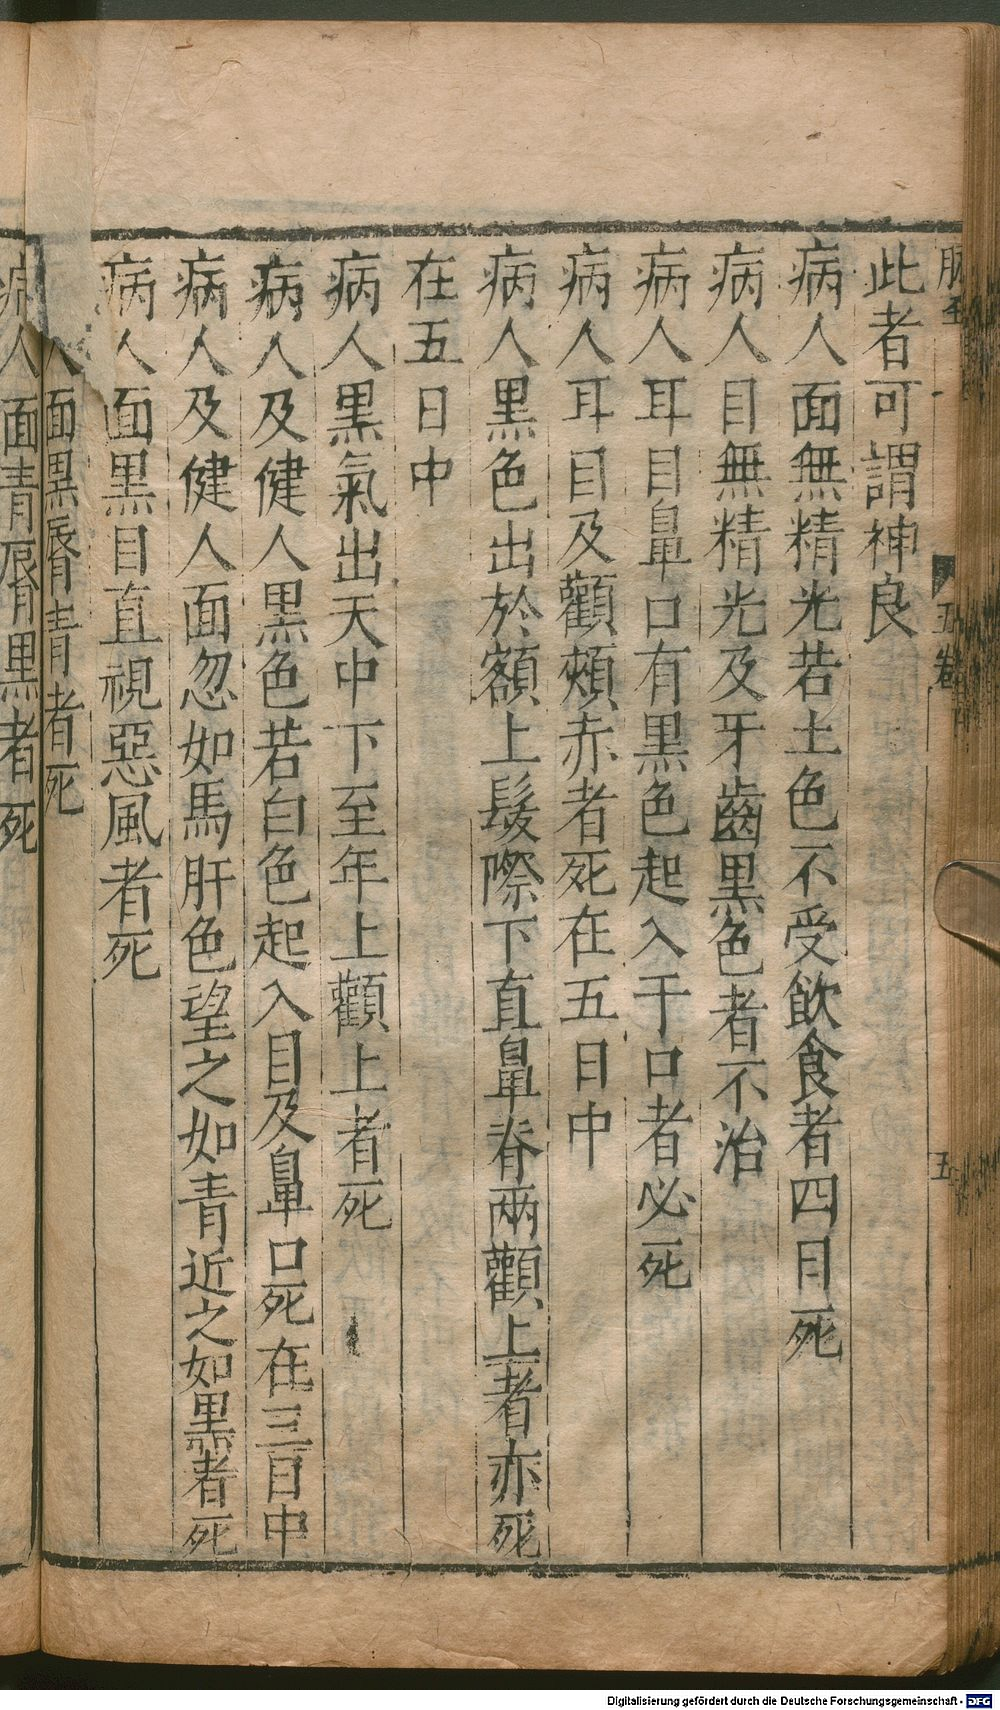 此者可謂神良
病人面無精光若土色不受飲食者四日死
病人目無精光及牙齒黑色者不治
病人耳目鼻口有黑色起入于口者必死
病人耳目及顴頰赤者死在五日中
病人黑色出於額上髮際下直鼻脊兩顴上者亦死
在五日中
病人黑氣出天中下至年上顴上者死
病人及健人黑色若白色起入目及鼻口死在三日中
病人及健人面忽如馬肝色望之如青近之如黑者死
病人面黑目直視惡風者死
人面黑脣青者死
病人面青脣黑者死
五卷
五
Digitalisierung gefördert durch die Deutsche Forschungsgemeinschaft - DFG